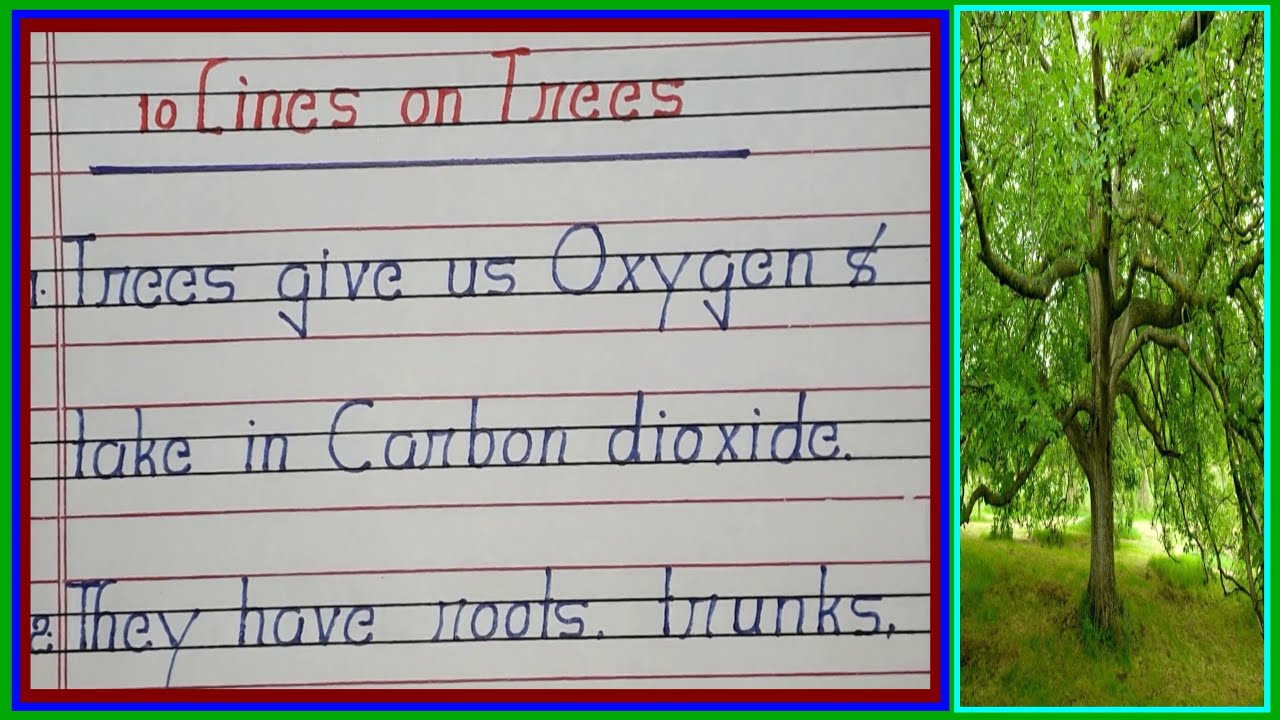 10 Lines on Trees
1. Trees give us Oxygen &
take in Carbon dioxide.
2. They have roots, trunks,